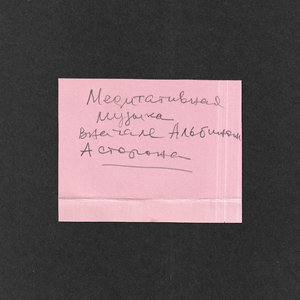 Медитативная
музыка
вначале Альбинони
А сторона